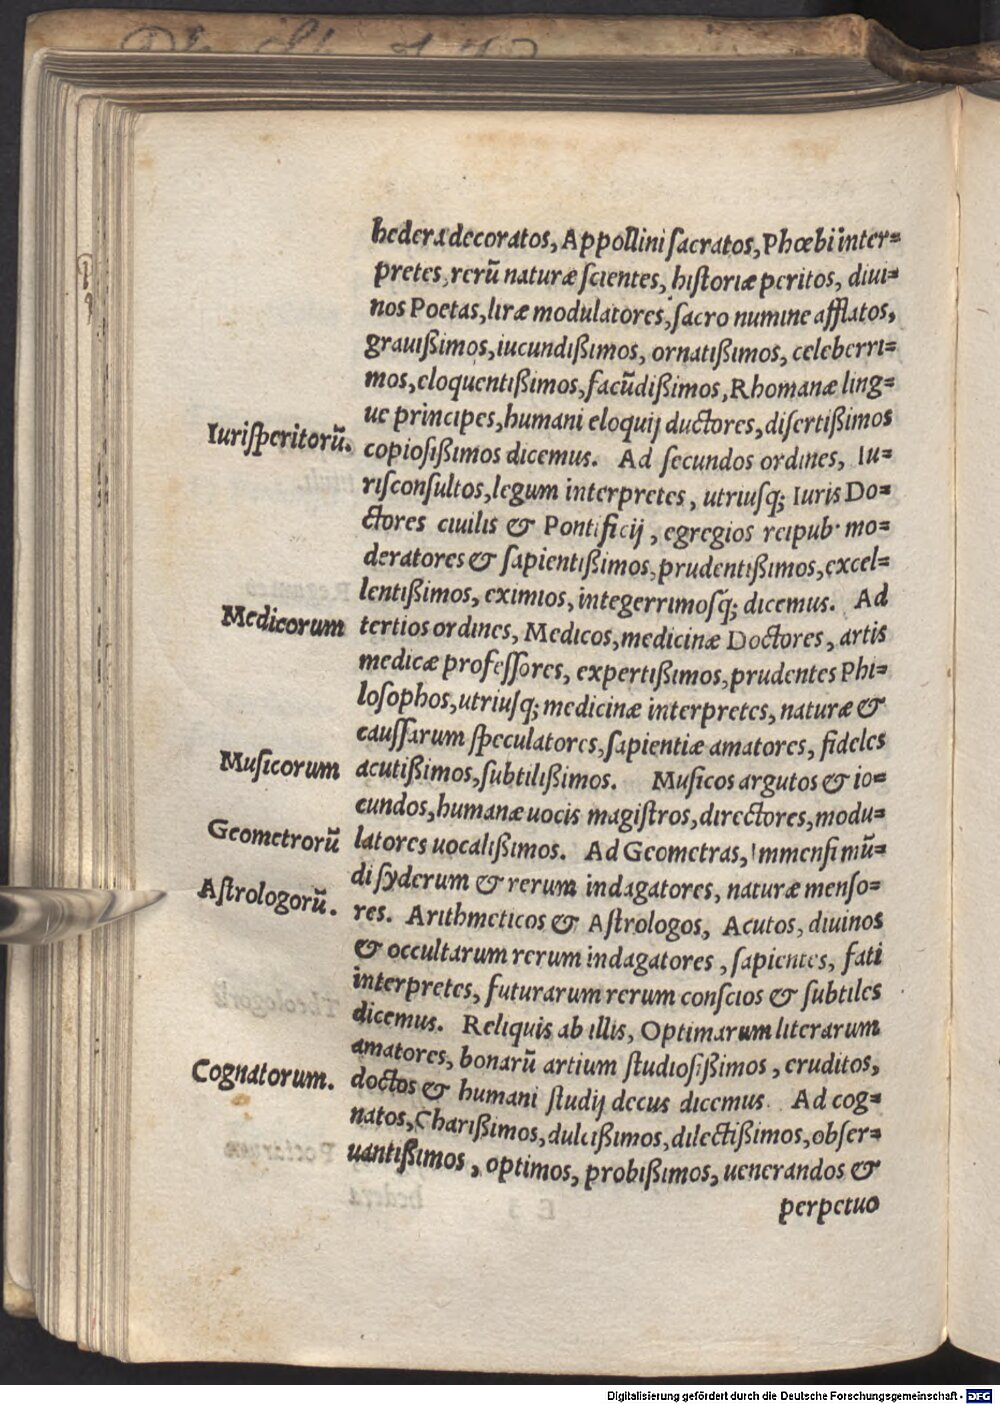 hedera decoratos, Appollini sacratos, Phœbi inter=
pretes, rerũ naturæ scientes, historiæ peritos, diui=
nos Poetas, liræ modulatores, sacro numine afflatos,
grauißimos, iucundißimos, ornatißimos, celeberri=
mos, eloquentißimos, facũdißimos, Rhomanæ ling=
uę principes, humani eloquij ductores, disertißimos
Iurisperitorũ.
copiosißimos dicemus. Ad secundos ordines, Iu=
risconsultos, legum interpretes, utriusq; Iuris Do=
ctores ciuilis & Pontificij, egregios reipub. mo=
deratores & sapientißimos, prudentißimos, excel=
lentißimos, eximios, integerrimosq́; dicemus. Ad
Medicorum
tertios ordines, Medicos, medicinæ Doctores, artis
medicæ professores, expertißimos, prudentes Phi=
losophos, utriusq; medicinæ interpretes, naturæ &
caussarum speculatores, sapientiæ amatores, fideles
Musicorum
acutißimos, subtilißimos. Musicos argutos & io=
cundos, humanæ uocis magistros, directores, modu=
Geometrorũ
latores uocalißimos. Ad Geometras, Immensi mũ=
di syderum & rerum indagatores, naturæ menso=
Astrologorũ.
res. Arithmeticos & Astrologos, Acutos, diuinos
& occultarum rerum indagatores, sapientes, fati
interpretes, futurarum rerum conscios & subtiles
dicemus. Reliquis ab illis, Optimarum literarum
amatores, bonarũ artium studiosißimos, eruditos,
Cognatorum.
doctos & humani studij decus dicemus. Ad cog=
natos, Charißimos, dulcißimos, dilectißimos, obser=
uantißimos, optimos, probißimos, uenerandos &
perpetuo
Digitalisierung gefördert durch die Deutsche Forschungsgemeinschaft - DFG